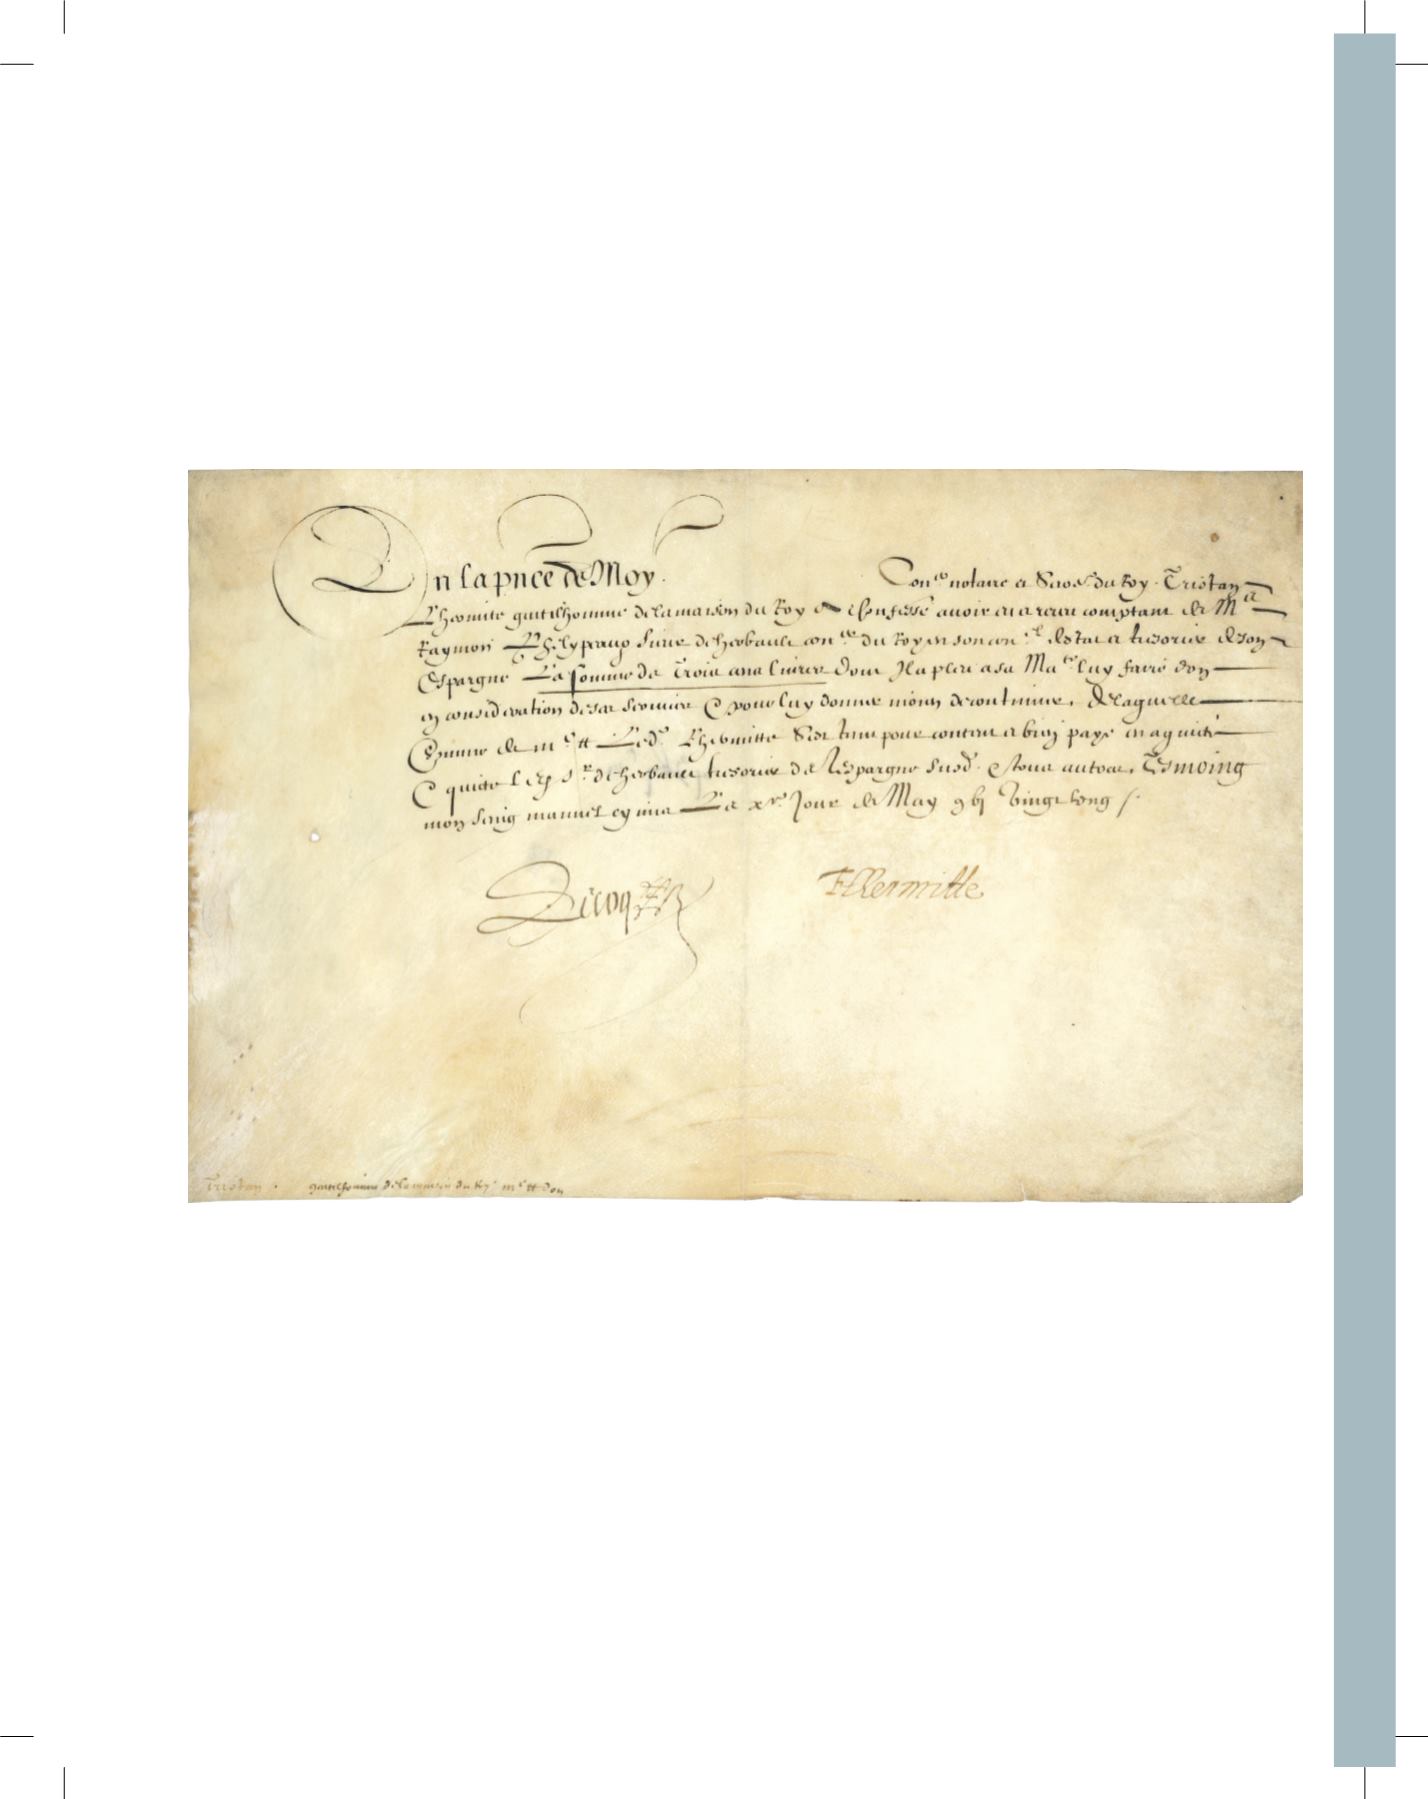 En la pñce de Moy. Con.er notaire et Secre. du Roy. Tristan
Lhermite gentilhomme de la maison du Roy a confessé avoir eu et receu comptant de Me
Raymon Phelypeaup sieur de herbault con.er du Roy en son con.el destat et tresorier de son
Espargne La somme de Trois cens livres dont Il a pleu a sa Ma.té luy faire don
en consideration de ses services Et pour luy donner moien de continuer. De laquelle
somme de iii c tt Led. Lhermitte Sest tenu pour content et bien payé en a quicté
Et quicte led s.r de herbault tresorier de lespargne susd. Et tous autres. Tesmoing
mon seing manuel cy mis Le xv.e Jour de May vi Vingt
FLhermitte
Tristan gentilhomme de la maison du Roy iii c tt don